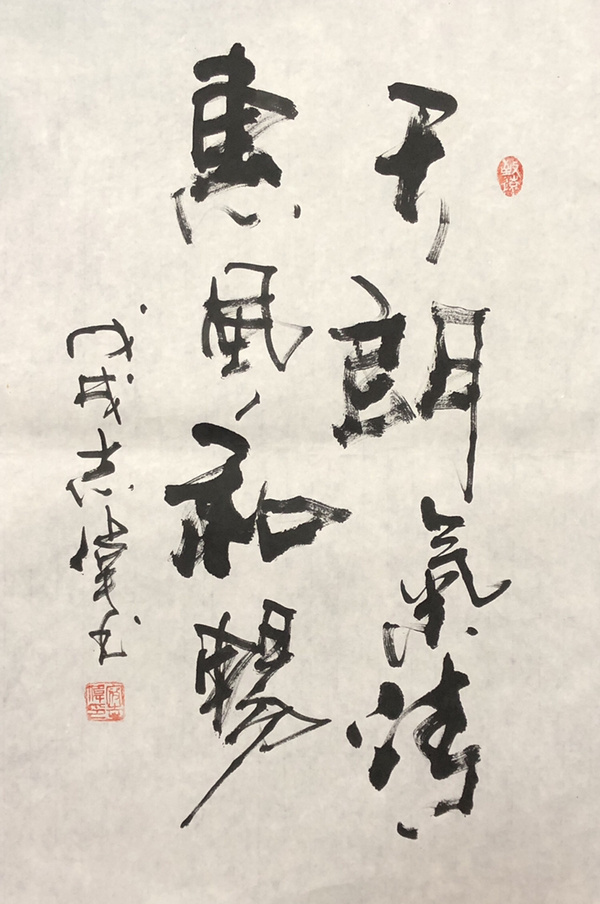 天朗氣清
惠風和暢
戊戌志偉书